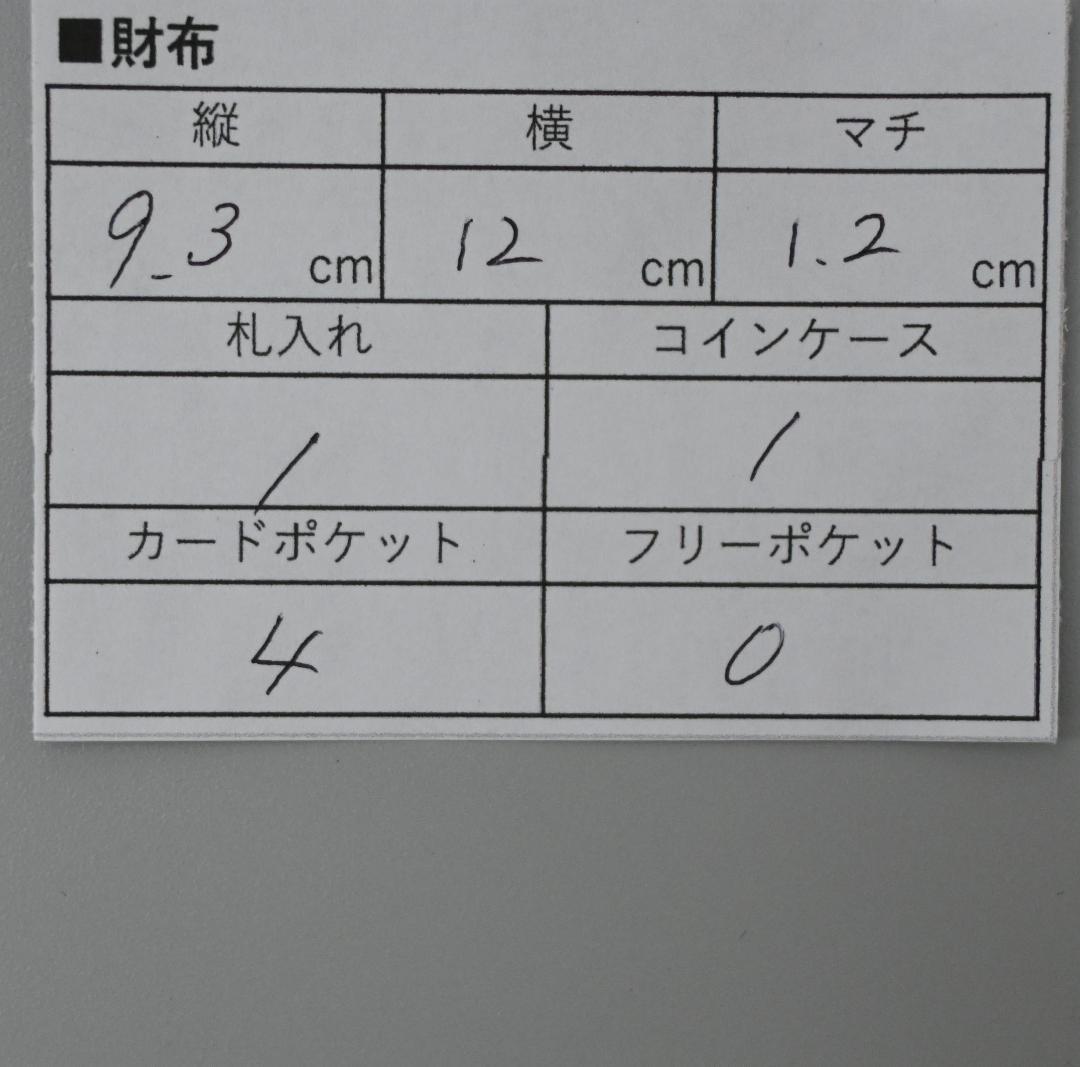 ■財布
縦 横 マチ
9.3 cm 12 cm 1.2 cm
札入れ コインケース
1 1
カードポケット フリーポケット
4 0